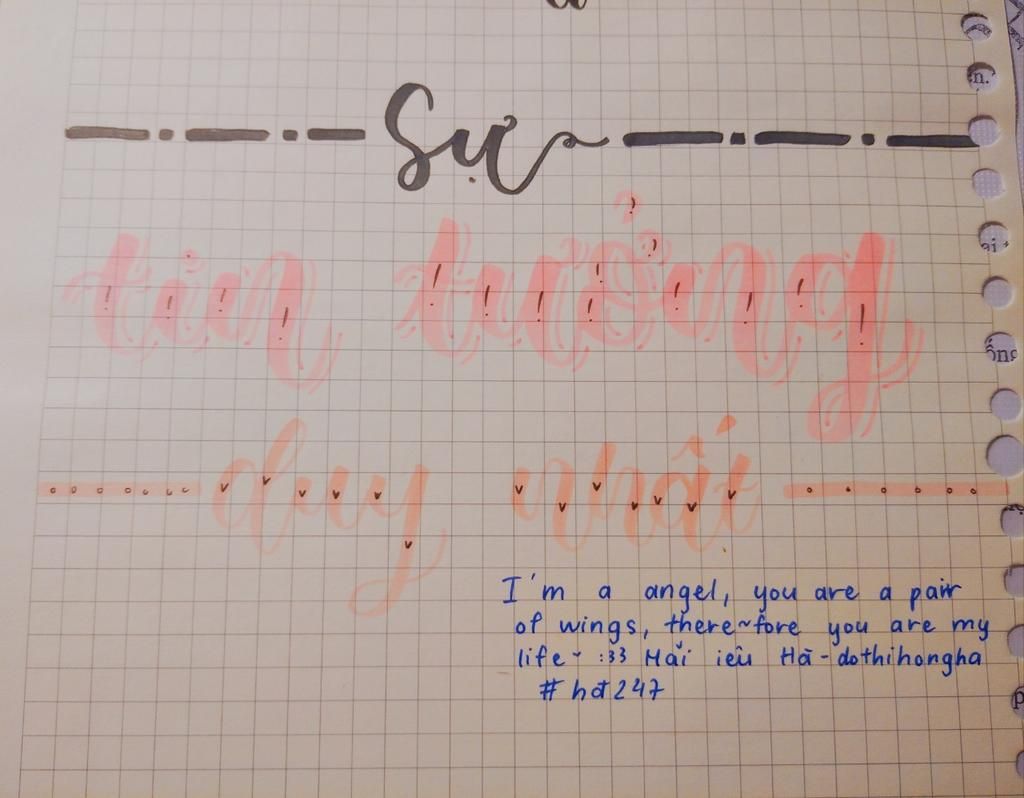 Sự
tin tưởng
duy nhất
I'm a angel, you are a pair
of wings, there~fore you are my
life~ :33 Mãi iêu Hà - dothihongha
#hđ247